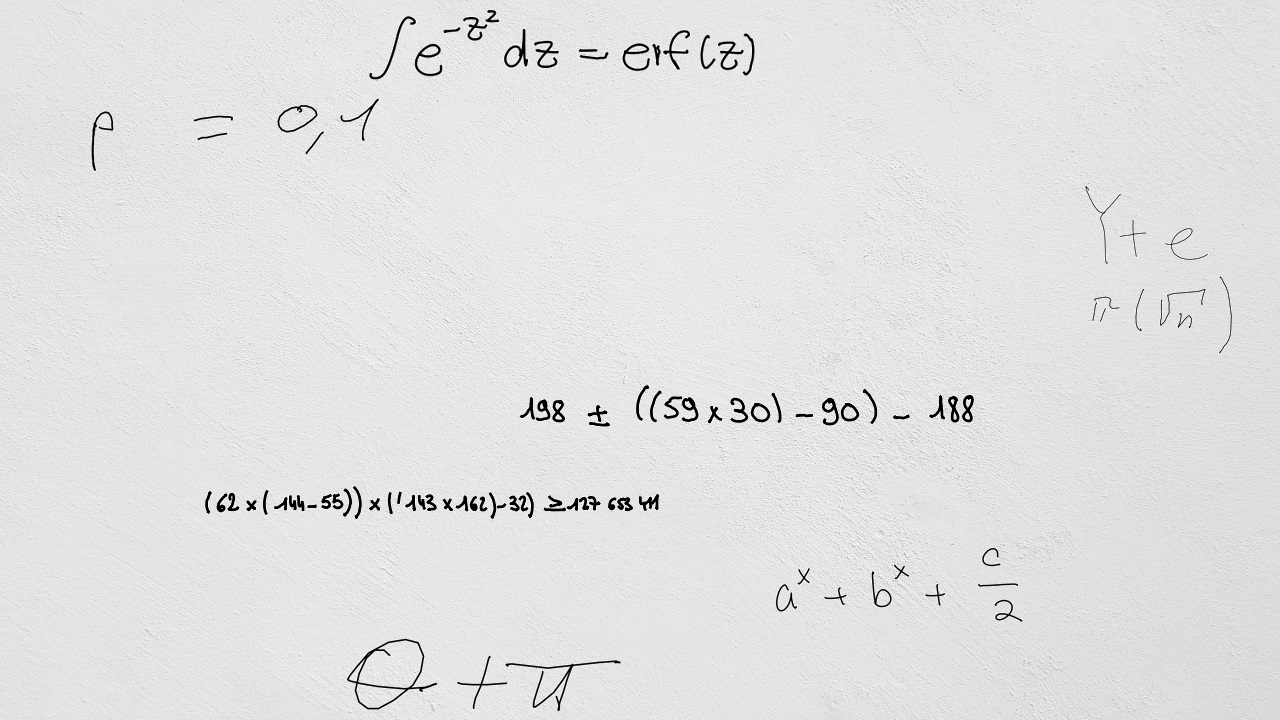 ∫e^{-z^2} dz = erf(z)
ρ = 0,1
Y + e
π(√n)
198 ± ((59 x 30) - 90) - 188
(62 x (144-55)) x ((143 x 162)-32) ≥ 127 653 411
a^x + b^x + c/2
Θ + π